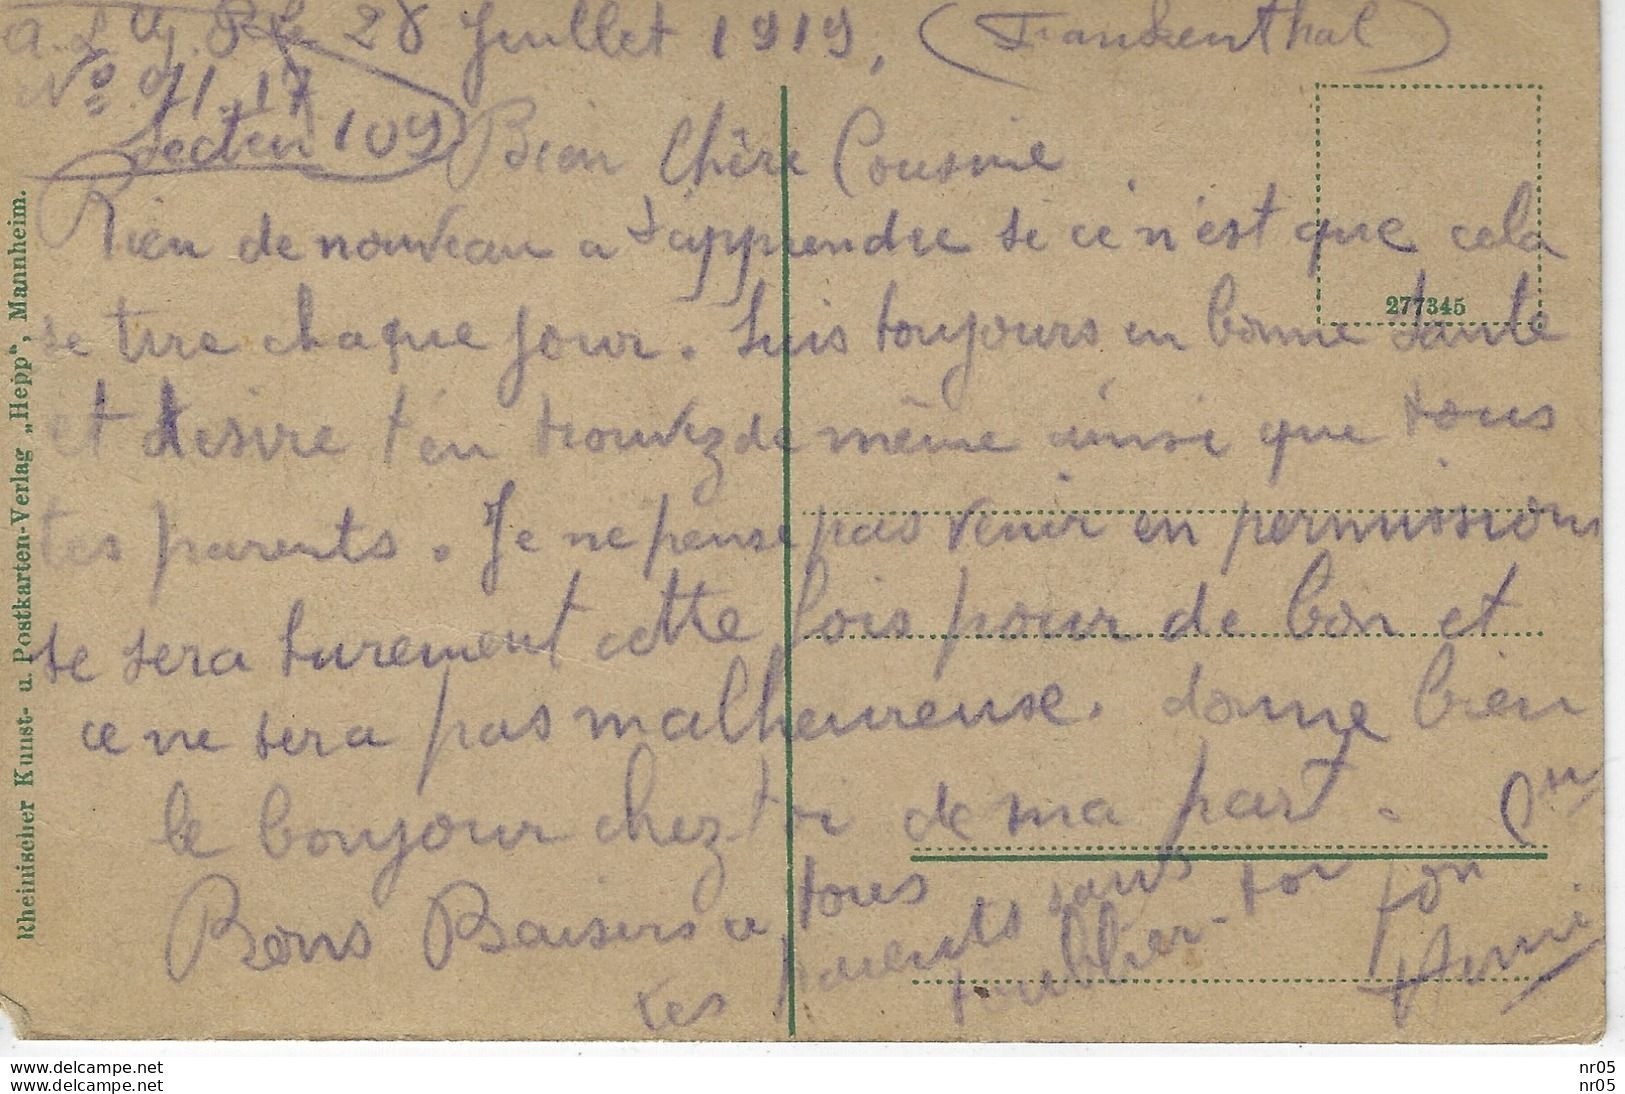 Le 28 Juillet 1919, (Frankenthal)
No 911.17
Secteur 109
Bien Chère Cousine
Rien de nouveau a t'apprendre si ce n'est que cela
se tire chaque jour. Suis toujours en bonne santé
et desire t'en trouvez de même ainsi que tous
tes parents. Je ne pense pas venir en permission
se sera surement cette fois pour de bon et
ce ne sera pas malheureuse. donne bien
le bonjour chez toi de ma part.
Bons Baisers a tous
tes parents sans toi ton
t'oublier
Ami
277345
Rheinischer Kunst- u. Postkarten-Verlag „Hepp", Mannheim.
www.delcampe.net
www.delcampe.net
nr05
nr05